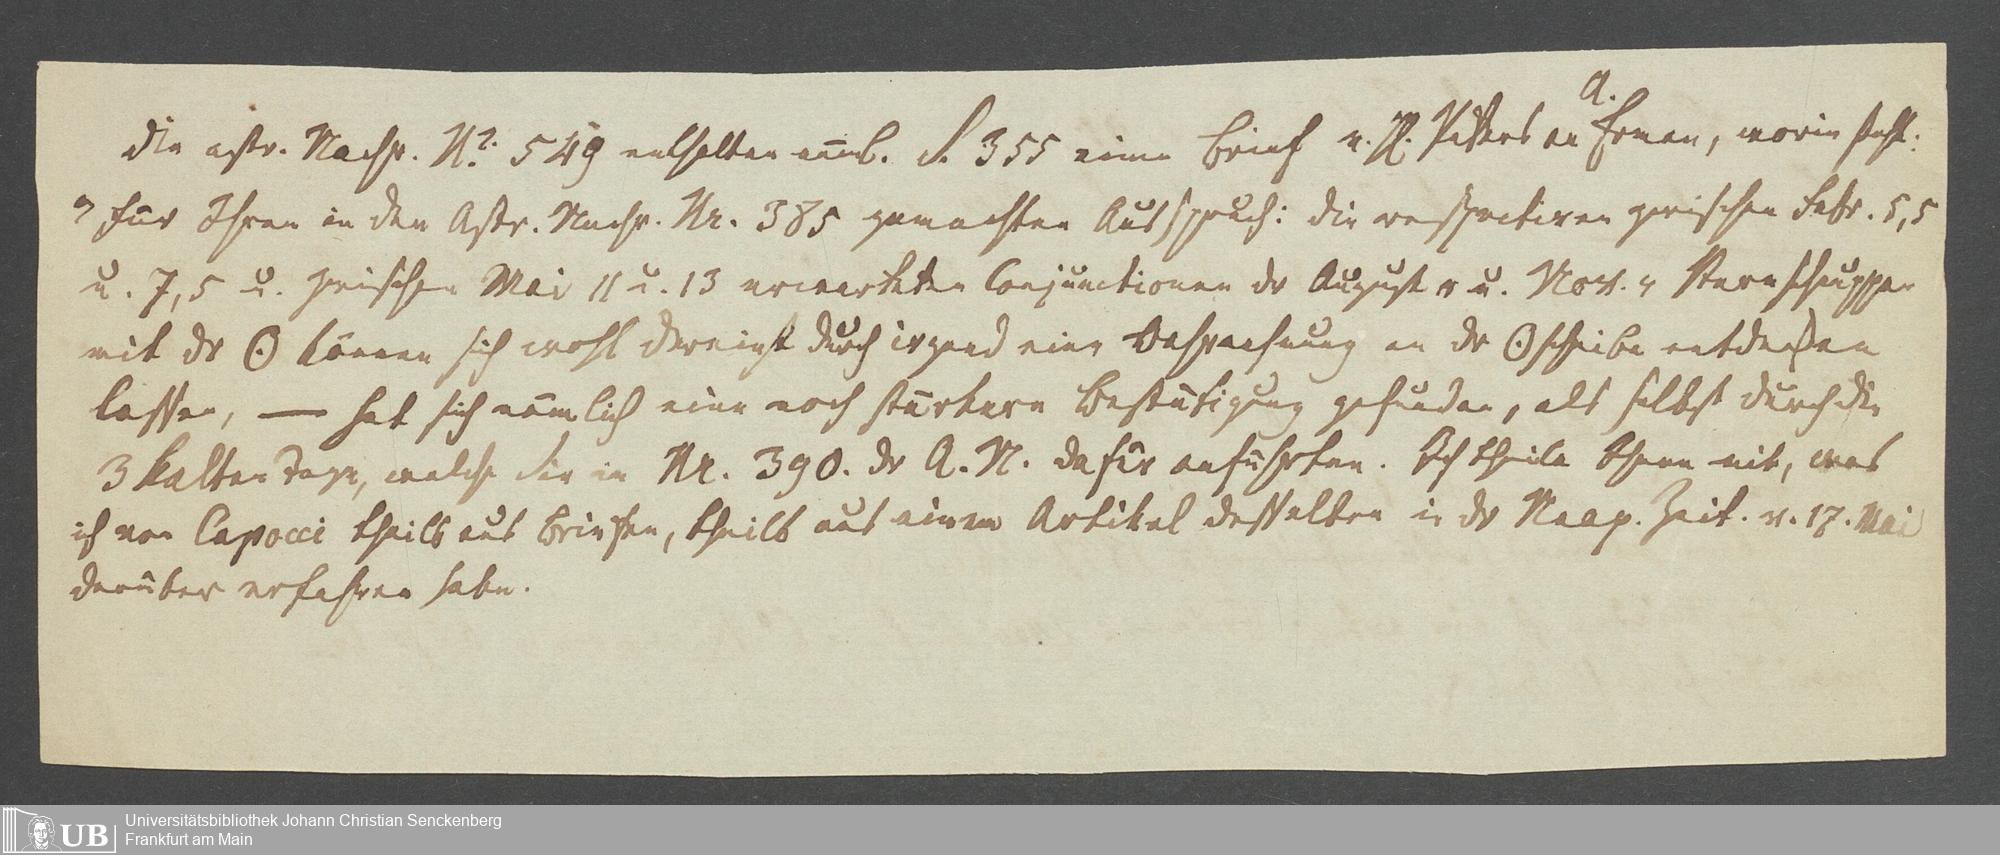 A.
Die astr. Nachr. No. 549 enthalten auch S. 355 einen Brief v. H. Peters an Erman, worin steht:
„Für Ihren in den Astr. Nachr. Nr. 385 gemachten Ausspruch: die respectiven zwischen Febr. 5,5
u. 7,5 u. zwischen Mai 11 u. 13 erwarteten Conjunctionen der August- u. Nov.- Sternschnuppen
mit der ☉ können sich wohl dereinst durch irgend eine Wahrnehmung an der ☉scheibe entdecken
lassen, — hat sich nämlich eine noch stärkere Bestätigung gefunden, als selbst durch die
3 kalten Tage, welche Sie in Nr. 390. der A. N. dafür anführten. Ich theile Ihnen mit, was
ich von Capocci theils aus Briefen, theils aus einem Artikel desselben in der Neap. Zeit. v. 17. Mai
darüber erfahren habe.
UB
Universitätsbibliothek Johann Christian Senckenberg
Frankfurt am Main